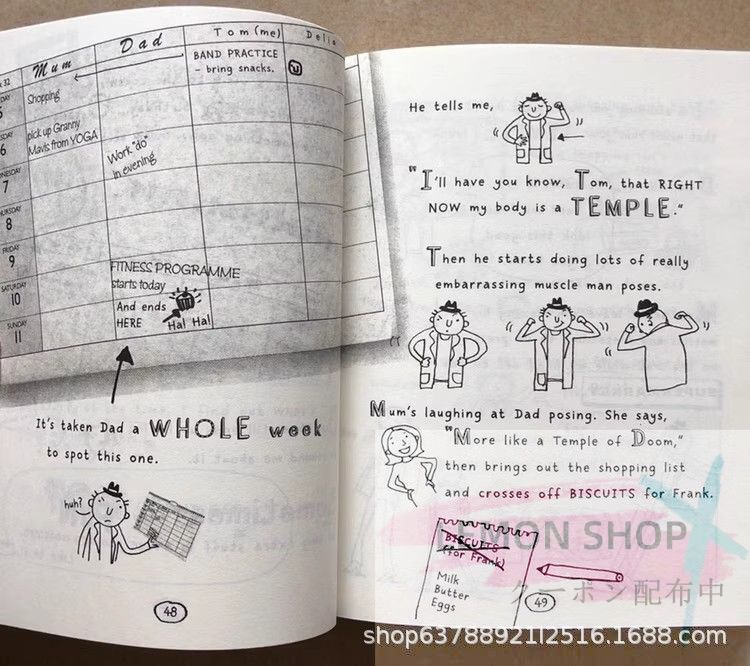 Mum
Dad
Tom (me)
Delia
32
BAND PRACTICE
- bring snacks.
Shopping
5
pick up Granny
Mavis from YOGA
6
Work "do"
in evening
7
8
FRIDAY
9
SATURDAY
10
SUNDAY
11
FITNESS PROGRAMME
starts today
And ends
HERE
Ha! Ha!
It's taken Dad a WHOLE week
to spot this one.
huh?
48
He tells me,
"I'll have you know, Tom, that RIGHT
NOW my body is a TEMPLE."
Then he starts doing lots of really
embarrassing muscle man poses.
Mum's laughing at Dad posing. She says,
"More like a Temple of Doom,"
then brings out the shopping list
and crosses off BISCUITS for Frank.
BISCUITS
(for Frank)
Milk
Butter
Eggs
49
LEMON SHOP
クーポン配布中
shop63788921l2516.1688.com